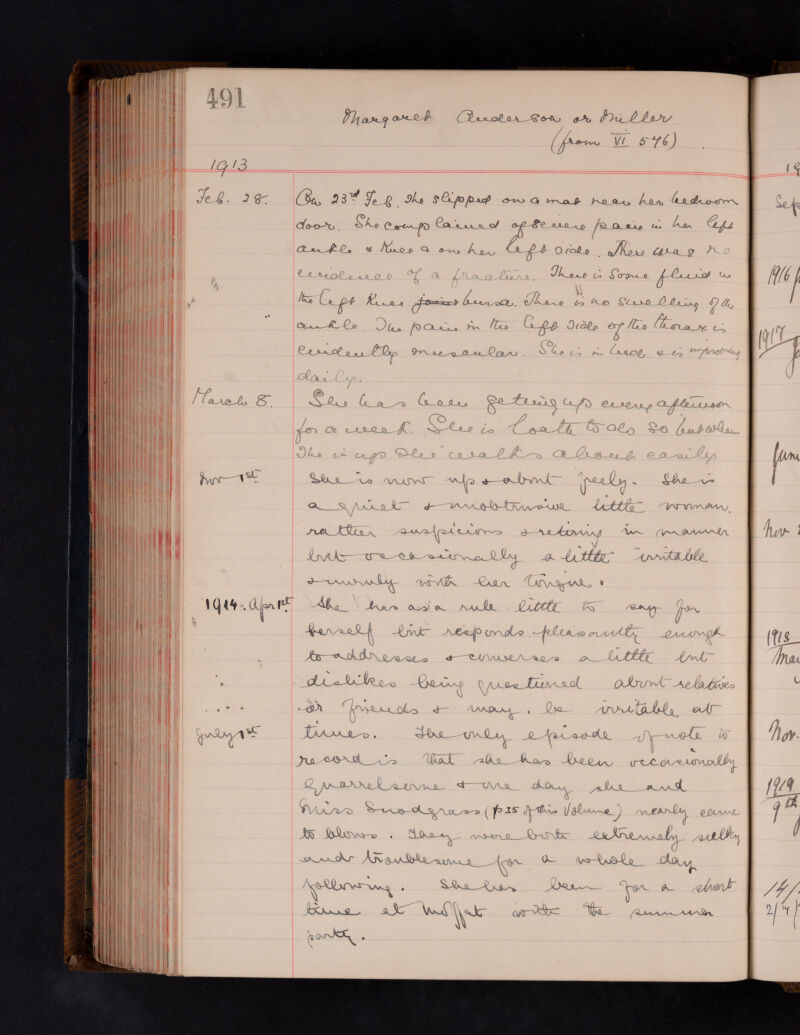 491
Margaret Anderson or Miller
(from VI 576)
1913
Feb. 28. On 23rd Feb. she slipped on a mat near her bedroom
door. She complained of severe pain in her left
ankle & knee & on her left side. There was no
evidence of a fracture. There is some fluid in
the left knee joint bursa. There is no swelling of the
ankle. The pain in the left side of the thorax is
evidently muscular. She is in bed & is improving
daily.
March 8. She has been getting up every afternoon
for a week. She is loath to do so but when
she is up she walks about easily
Nov 1st She is now up & about freely. She is
a quiet & unobtrusive little woman,
rather suspicious & retiring in manner
but occasionally a little irritable
& unruly with her tongue.
1914. Apr 1st She has as a rule little to say for
herself but responds pleasantly enough
to addresses & converses a little but
dislikes being questioned about relatives
or friends & may be irritable at
July 1st times. The only episode of note to
record is that she has been occasionally
quarrelsome & one day she and
Miss Snodgrass (p 35 of this Volume) nearly came
to blows. They were both extremely sulky
and troublesome for a whole day
following. She has been for a short
time at Moffat with the summer
party.
19
Sep
1916
1917
June
Nov
1918
Mar
Nov.
1919
9th
14/
2/4/